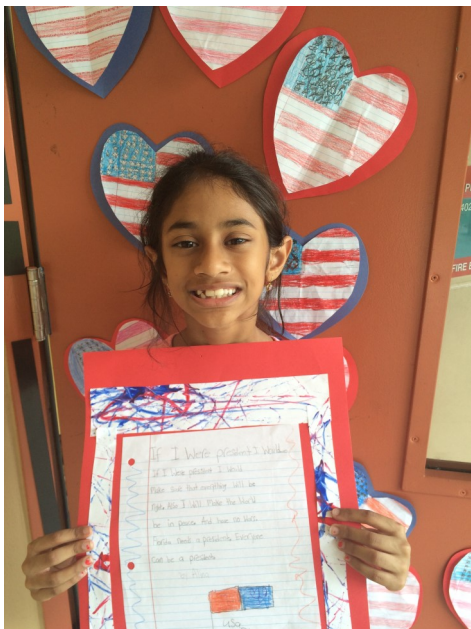 If I Were presient I Would
If I were presient I would
Make sure that everything will be
I will Make the World
be in peace and have no wars
need a president Everyone
can be a presiente
USA
FIRE